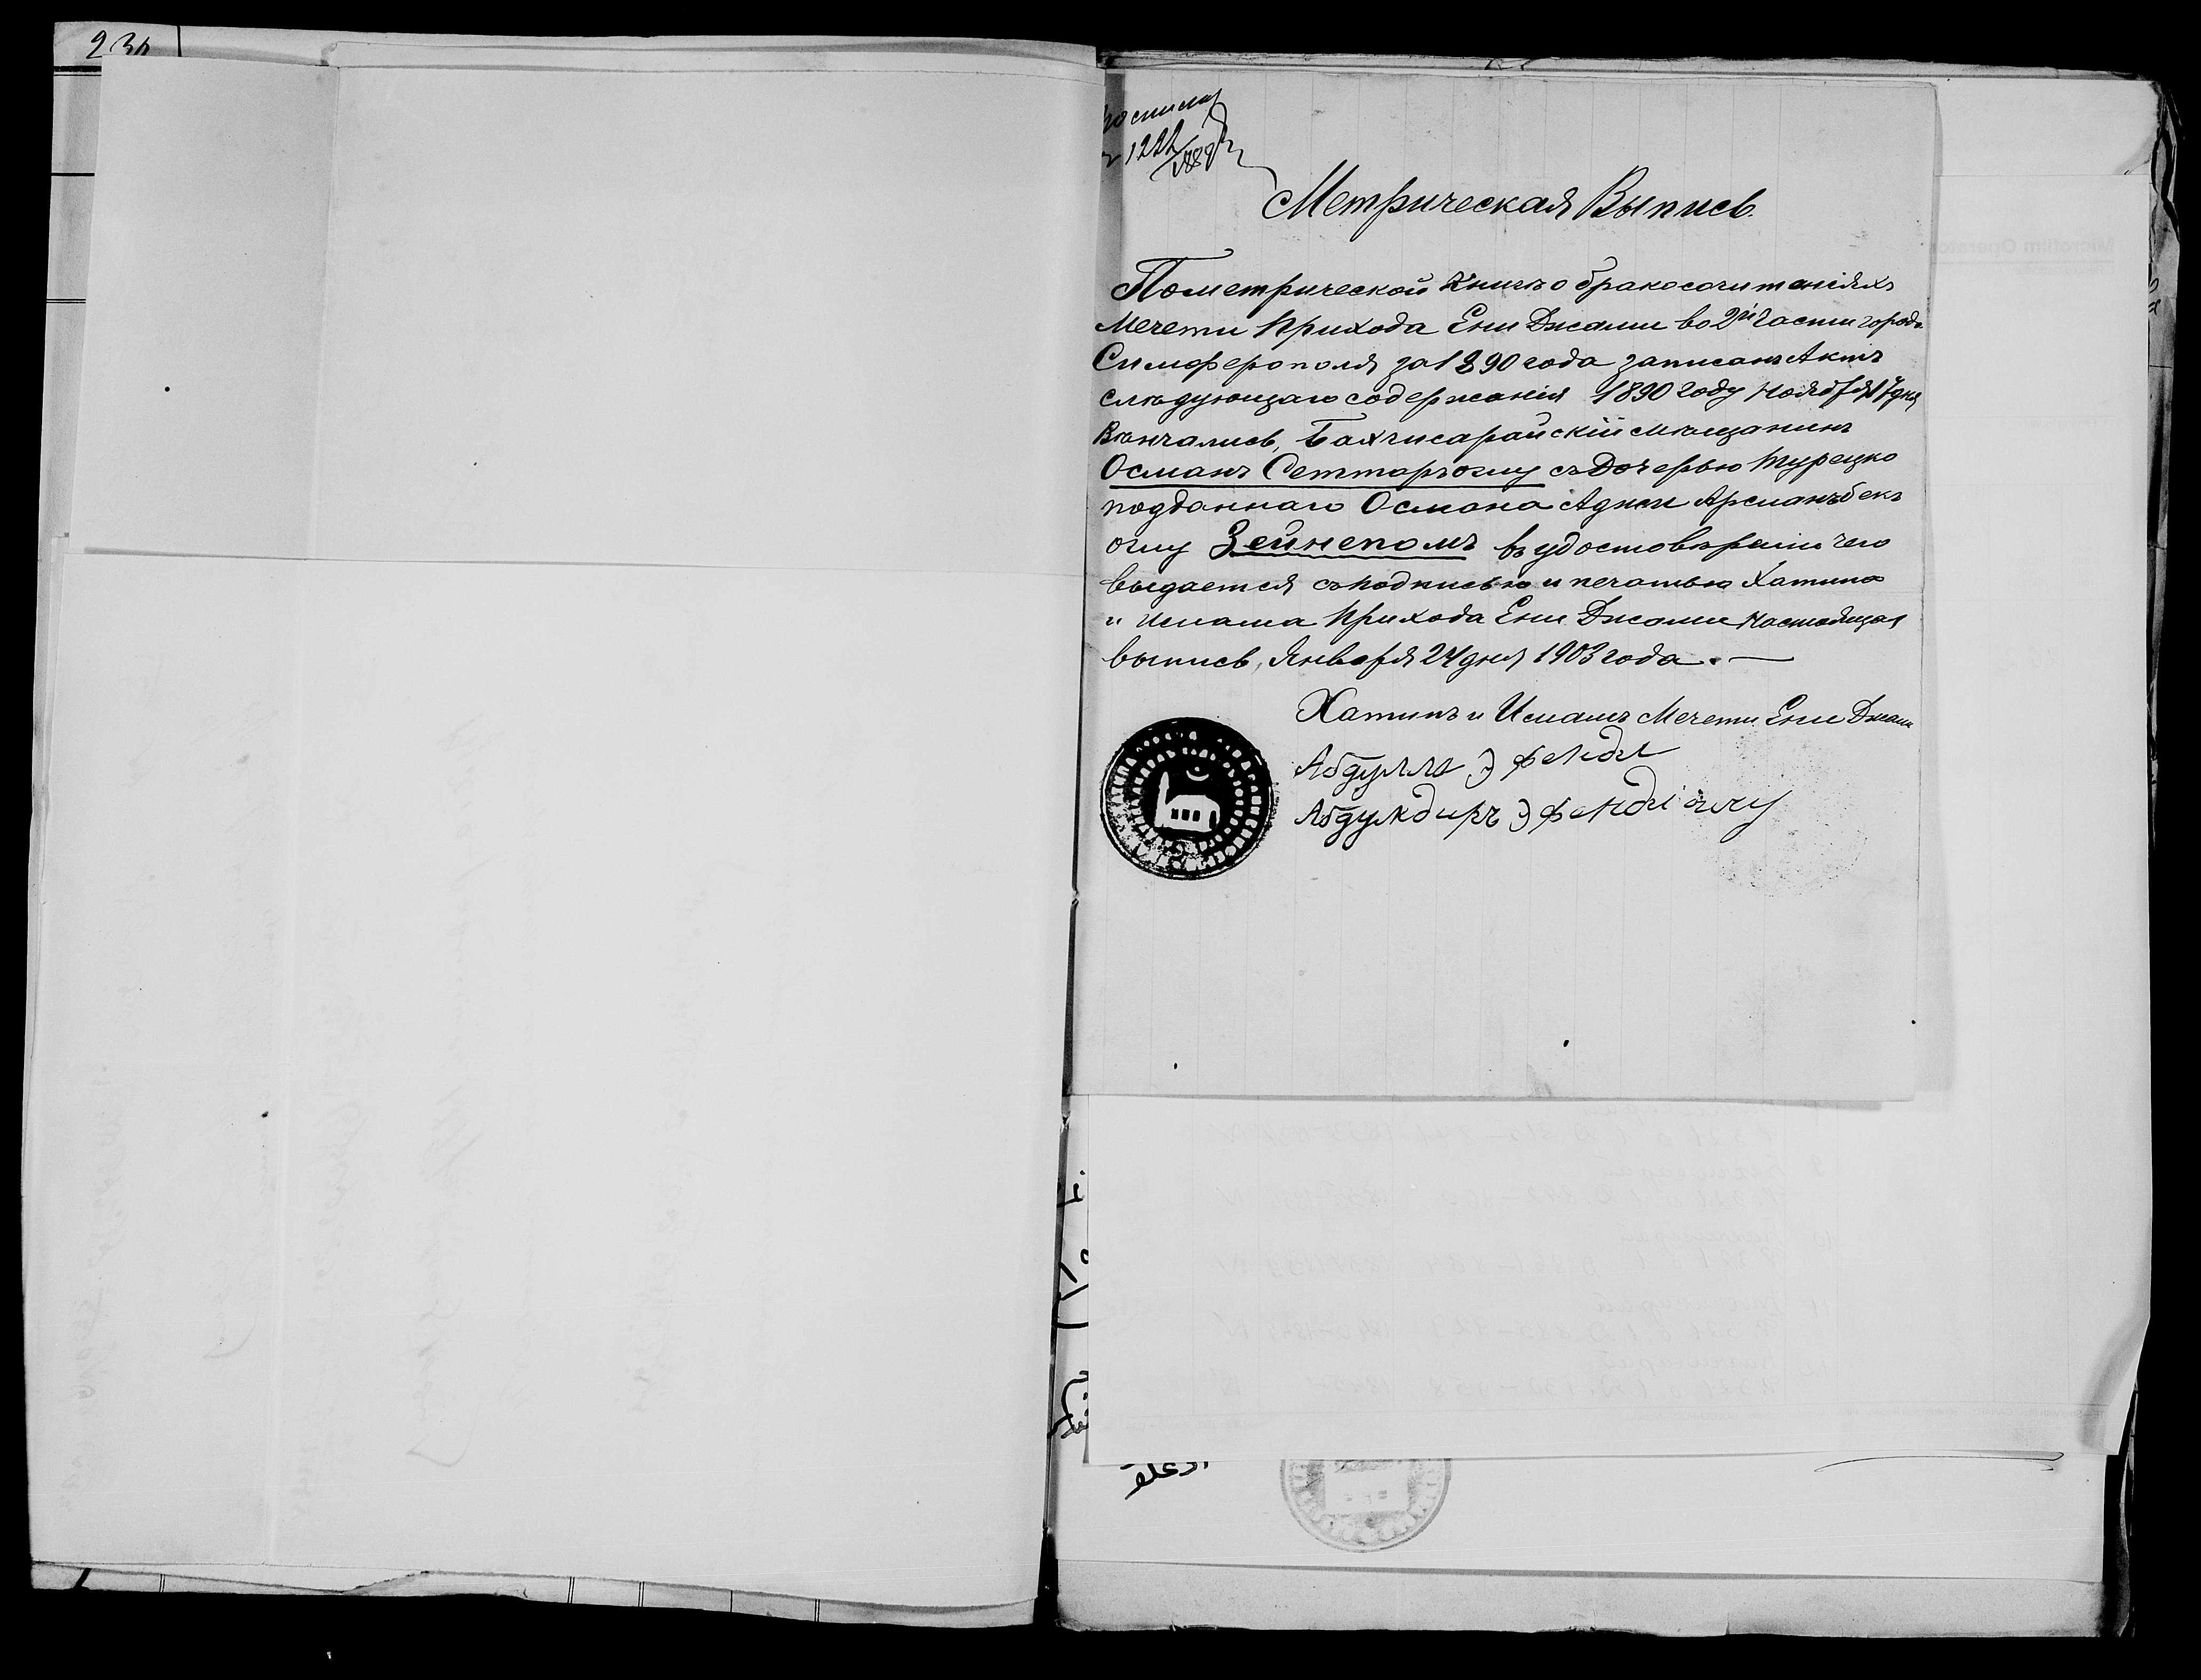 236
1222
1888
Метрическая Выпись.
По метрической книгѣ о бракосочитанiяхъ
Мечети Прихода Ени Джами во 2й части города
Симферополя за 1890 года записанъ Актъ
слѣдующаго содержанiя 1890 году ноября 17 дня
Вѣнчались, Бахчисарайскiй мѣщанинъ
Османъ Сеттаръ оглу съ Дочерью Турецко
подданнаго Османа Аджи Арсланъ бекъ
оглу Зейнепомъ въ удостовѣренiи чего
выдается съ подписью и печатью Хатипа
и Имама Прихода Ени Джами настоящая
выпись, Января 24 дня 1903 года. —
Хатипъ и Имамъ Мечети Ени Джами
Абдулла Эфенди
Абдукдиръ Эфенди оглу